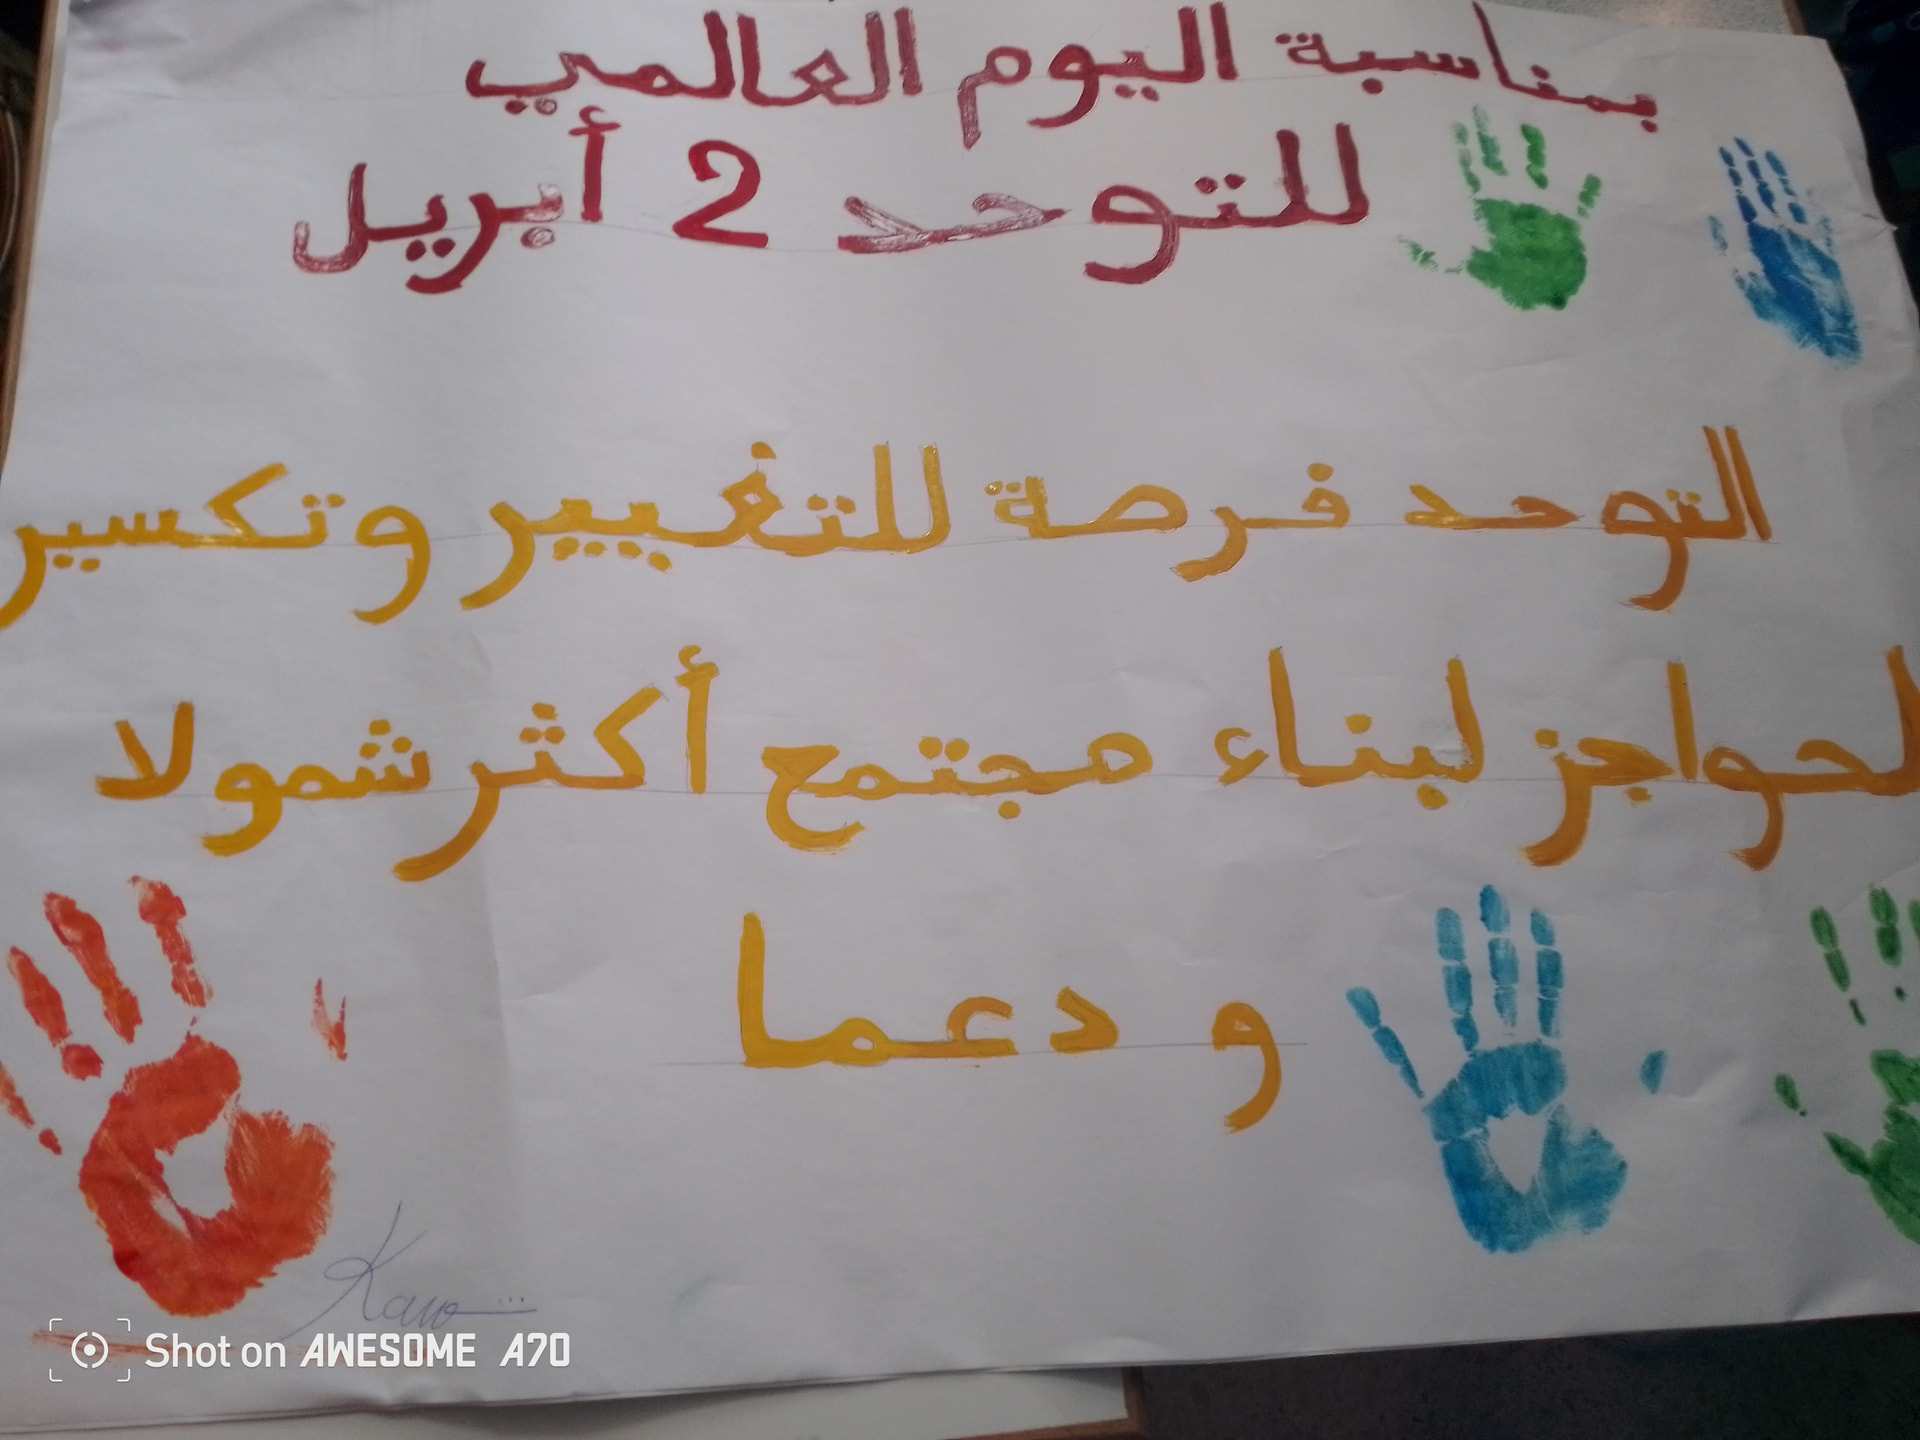 بمناسبة اليوم العالمي
للتوحد 2 أبريل
التوحد فرصة للتغيير وتكسير
لحواجز لبناء مجتمع أكثر شمولا
و دعما
Shot on AWESOME A70